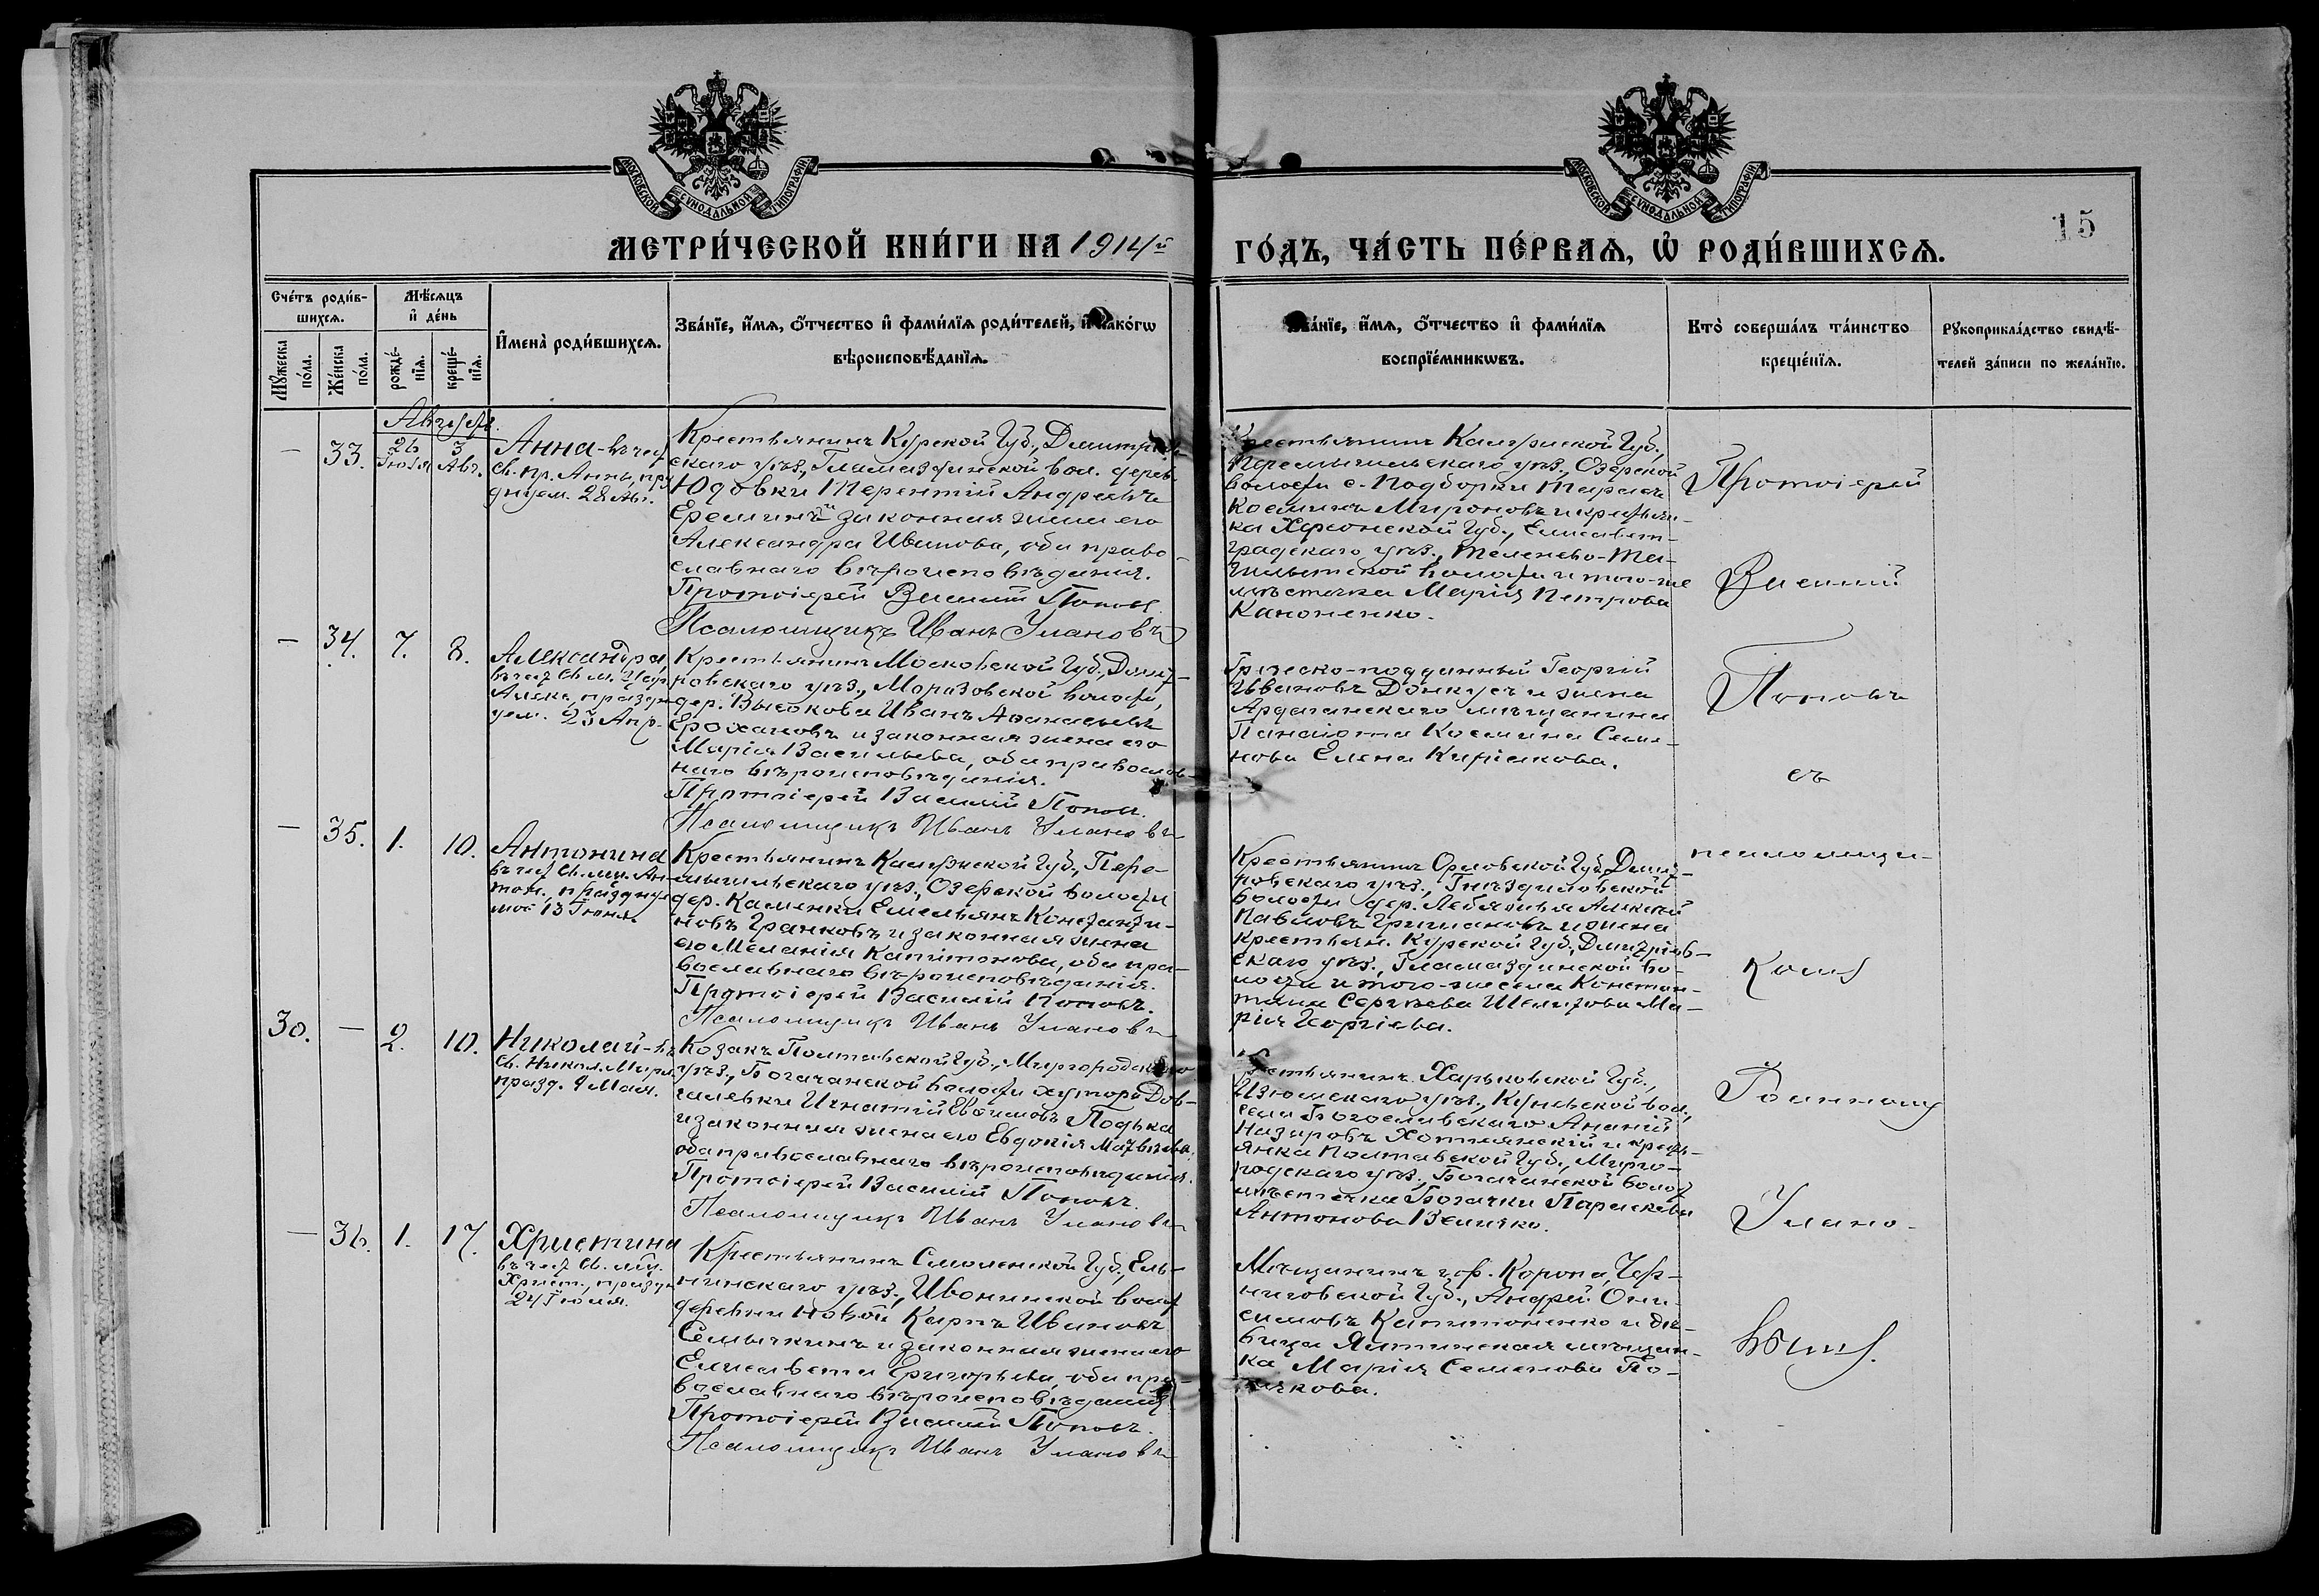 МОСКОВСКОЙ СѴНОДАЛЬНОЙ ТИПОГРАФІИ
МОСКОВСКОЙ СѴНОДАЛЬНОЙ ТИПОГРАФІИ
15
МЕТРИ́ЧЕСКОЙ КНИ́ГИ НА 1914й
ГО́ДЪ, ЧА́СТЬ ПЕ́РВАѦ, Ѡ РОДИ́ВШИХСѦ.
Сче́тъ роди́в-
шихсѧ.
Мꙋжеска по́ла.
Же́нска по́ла.
Мѣ́сѧцъ
и де́нь
рожде́-
нїѧ.
креще́-
нїѧ.
Имена̀ роди́вшихсѧ.
Зва́нїе, и́мѧ, о́тчество и фами́лїѧ роди́телей, и какѡ́гѡ
вѣроисповѣ́данїѧ.
Зва́нїе, и́мѧ, о́тчество и фами́лїѧ
воспрїе́мникѡвъ.
Кто̀ соверша́лъ та́инство
креще́нїѧ.
Рꙋкоприкла́дство свидѣ́-
телей за́писи по жела́нїю.
Августъ.
—
33.
26
Іюля
3
Авг.
Анна - въ чест
св. пр. Анны, пра
днуем. 28 Авг.
Крестьянинъ Курской Губ., Дмитріев
скаго уѣз., Гламаздинской вол. дерев.
Юдовки Терентій Андреевъ
Ереминъ и законная жена его
Александра Иванова, оба право-
славнаго вѣроисповѣданія.
Протоіерей Василій Поповъ
Псаломщикъ Иванъ Улановъ
Крестьянинъ Калужской Губ.,
Перемышльскаго уѣз., Озерской
волости с. Подборки Тарасъ
Косминъ Мироновъ и крестьян-
ка Херсонской Губ., Елисавет-
градскаго уѣз.,
волости и того-же
мѣстечка Марія Петрова
Кононенко.
—
34.
7.
8.
Александра,
въ чест св. м. Цар.
Алекс., праздн
уем. 23 Апр.
Крестьянинъ Московской Губ., Дмит-
ровскаго уѣз., Морозовской волости,
дер. Высоково Иванъ Аѳанасьевъ
Ерохановъ и законная жена его
Марія Васильева, оба православ-
наго вѣроисповѣданія.
Протоіерей Василій Поповъ.
Псаломщикъ Иванъ Улановъ
Греческо-подданный Георгій
Ивановъ Донкусъ и жена
Ардаганскаго мѣщанина
Панаіота Космина Семе-
нова Елена Киріакова.
—
35.
1.
10.
Антонина
въ чест св. мч. Ан-
тон., празднуе
мое 13 Іюня.
Крестьянинъ Калужской Губ., Пере-
мышльскаго уѣз., Озерской волости
дер. Каменки Емельянъ Константи-
новъ Гранковъ и законная жена
его Меланія Капитонова, оба пра-
вославнаго вѣроисповѣданія.
Протоіерей Василій Поповъ.
Псаломщикъ Иванъ Улановъ
Крестьянинъ Орловской Губ., Дмит-
ровскаго уѣз., Гнѣздиловской
волости дер. Лебяжья Алексѣй
Павловъ Гришановъ и жена
крестьян. Курской Губ., Дмитріев-
скаго уѣз., Гламаздинской во-
лости и того-же села Констан-
тина Сергѣева Шелихова Ма-
рія Георгіева.
30.
—
2.
10.
Николай - въ
св. Никол. Мирл.
празд. 9 Мая.
Козакъ Полтавской Губ., Миргородскаго
уѣз., Богачанской волости хутора Дов-
галевки Игнатій Евфимовъ Подька
и законная жена его Евдокія Матвѣева,
оба православнаго вѣроисповѣданія.
Протоіерей Василій Поповъ.
Псаломщикъ Иванъ Улановъ
Крестьянинъ Харьковской Губ.,
Изюмскаго уѣз., Куньевской вол.,
села Богославскаго Ананій
Назаровъ Хотлянскій и кресть-
янка Полтавской Губ., Мирго-
родскаго уѣз., Богачанской волост
мѣстечка Богачки Параскева
Антонова Величко.
—
36.
1.
17.
Христина
въ чест св. му.
Христ., праздн
24 Іюля.
Крестьянинъ Смоленской Губ., Ель-
нинскаго уѣз., Ивонинской волост
деревни Новой Карпъ Ивановъ
Семычкинъ и законная жена его
Елисавета Григорьева, оба пра-
вославнаго вѣроисповѣданія
Протоіерей Василій Поповъ.
Псаломщикъ Иванъ Улановъ
Мѣщанинъ гор. Коропа, Чер-
ниговской Губ., Андрей Они-
симовъ Капитоненко и дѣ-
вица Ялтинская мѣщан-
ка Марія Семенова По-
лякова.
Протоіерей
Василій
Поповъ
съ
псаломщи-
комъ
Іоанномъ
Улано-
вымъ.